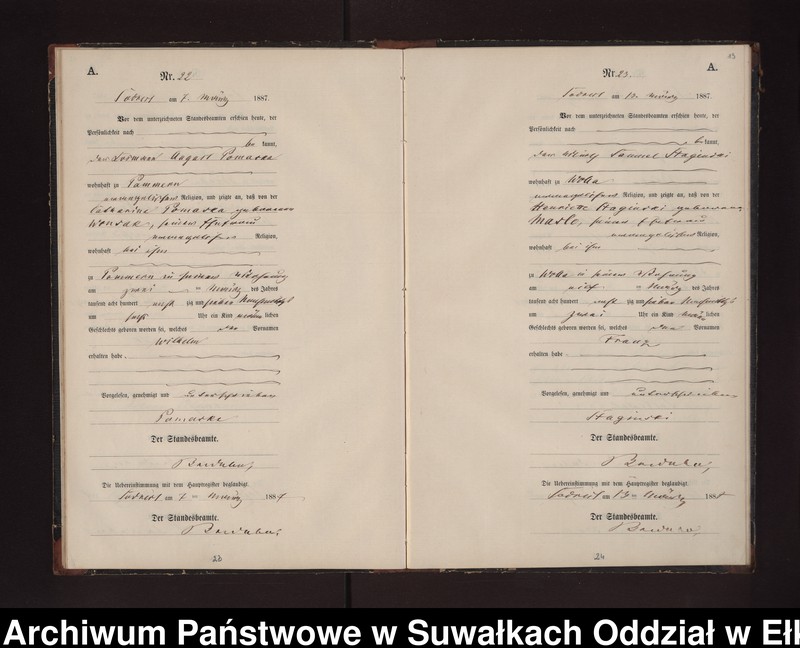 A.
Nr. 22
am 7. März 1887.
Vor dem unterzeichneten Standesbeamten erschien heute, der
Persönlichkeit nach
be kannt,
August
wohnhaft zu Pammern
evangelischer Religion, und zeigte an, daß von der
geborenen
seiner Ehefrau
evangelischer Religion,
wohnhaft bei ihm
zu Pammern in seiner Wohnung
am zwei März des Jahres
tausend acht hundert acht zig und sieben Nachmittags
um sechs Uhr ein Kind männ lichen
Geschlechts geboren worden sei, welches den Vornamen
Wilhelm
erhalten habe.
Vorgelesen, genehmigt und unterschrieben
Der Standesbeamte.
Die Uebereinstimmung mit dem Hauptregister beglaubigt.
am 7 März 1887
Der Standesbeamte.
23
13
A.
Nr. 23.
am 13. März 1887.
Vor dem unterzeichneten Standesbeamten erschien heute, der
Persönlichkeit nach
be kannt,
der Samuel Staginski
wohnhaft zu
evangelischer Religion, und zeigte an, daß von der
Henriette Staginski geborenen
seiner Ehefrau
evangelischer Religion,
wohnhaft bei ihm
zu in seiner Wohnung
am acht März des Jahres
tausend acht hundert acht zig und sieben Nachmittags
um zwei Uhr ein Kind männ lichen
Geschlechts geboren worden sei, welches den Vornamen
Franz
erhalten habe.
Vorgelesen, genehmigt und unterschrieben
Staginski
Der Standesbeamte.
Die Uebereinstimmung mit dem Hauptregister beglaubigt.
am 13 März 1887
Der Standesbeamte.
24
Archiwum Państwowe w Suwałkach Oddział w Ełk